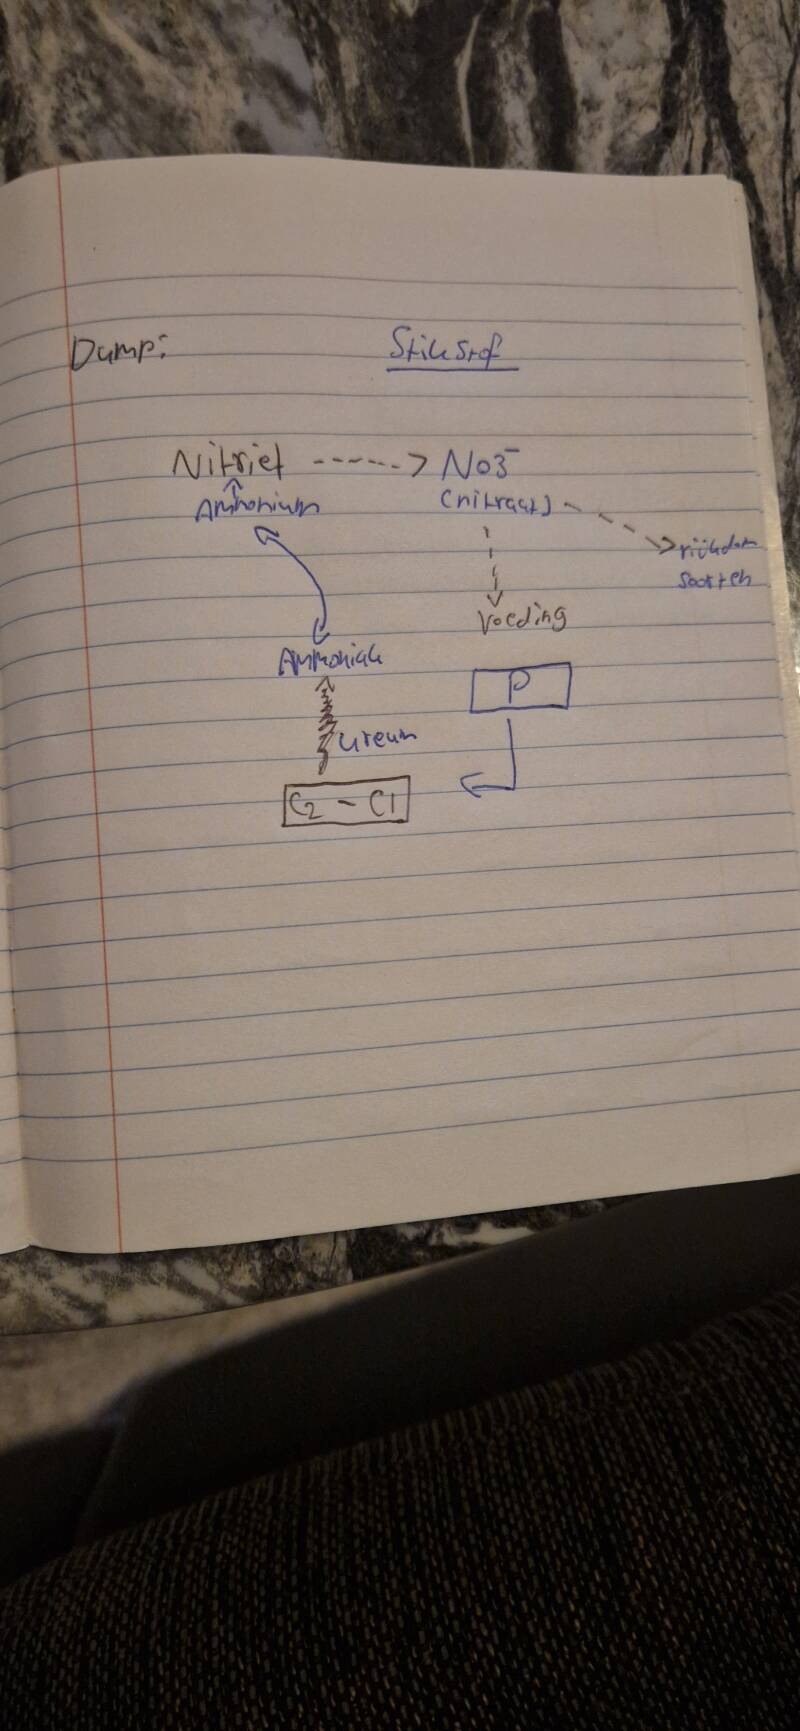 Dump:
Stikstof
Nitriet ----> NO3⁻
Ammonium
(nitraat)
rijkdom
soorten
Voeding
Ammoniak
P
ureum
C2 - C1